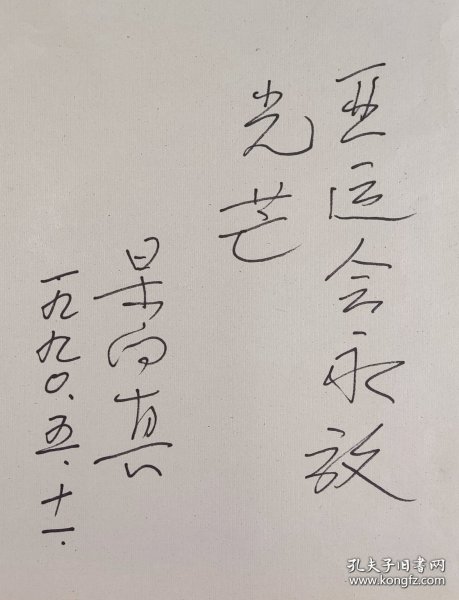 亚运会永放
光芒
杲向真
一九九〇.五.十一.
孔夫子旧书网
www.kongfz.com